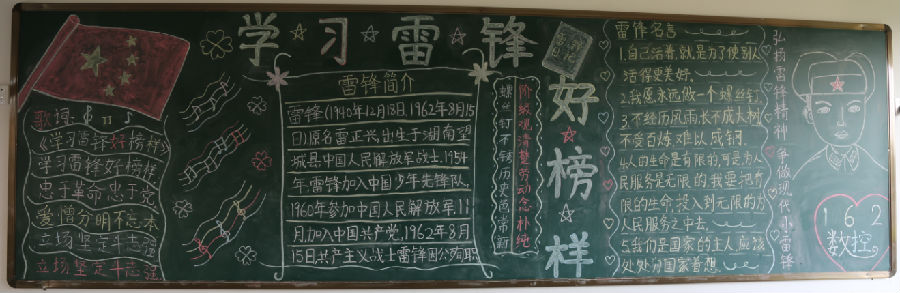 学习雷锋
好榜样
歌词:
《学习雷锋好榜样》
学习雷锋好榜样
忠于革命忠于党
爱憎分明不忘本
立场坚定斗志强
立场坚定斗志强
雷锋简介
雷锋(1940年12月18日,1962年8月15
日)原名雷正兴出生于湖南望
城县中国人民解放军战士.1954
年,雷锋加入中国少年先锋队,
1960年参加中国人民解放军,11
月,加入中国共产党,1962年8月
15日共产主义战士雷锋因公殉职
阶级观清楚劳动念朴纯
螺丝钉不锈历史苗常新
雷锋名言
1.自己活着,就是为了使别人
活得更美好.
2.我愿永远做一个螺丝钉
3.不经历风雨,长不成大树
不受百炼,难以成钢.
4.人的生命是有限的,可是,为人
民服务是无限的,我要把有
限的生命,投入到无限的为
人民服务之中去,
5.我们是国家的主人,应该
处处为国家着想
弘扬雷锋精神 争做现代小雷锋
162
数控